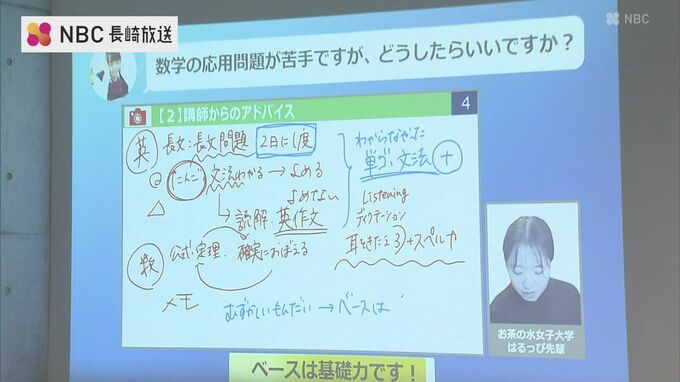 NBC 長崎放送
NBC
数学の応用問題が苦手ですが、どうしたらいいですか？
【2】講師からのアドバイス
4
英
長文：長文問題 2日に1度
たんご 文法わかる → よめる
よめない
↳ 読解 英作文
わからなかった
単ゴ、文法 +
Listening
ディクテーション
耳をきたえる + スペル力
数
公式・定理、確実におぼえる
メモ
むずかしいもんだい → ベースは
お茶の水女子大学
はるっぴ先輩
ベースは基礎力です！